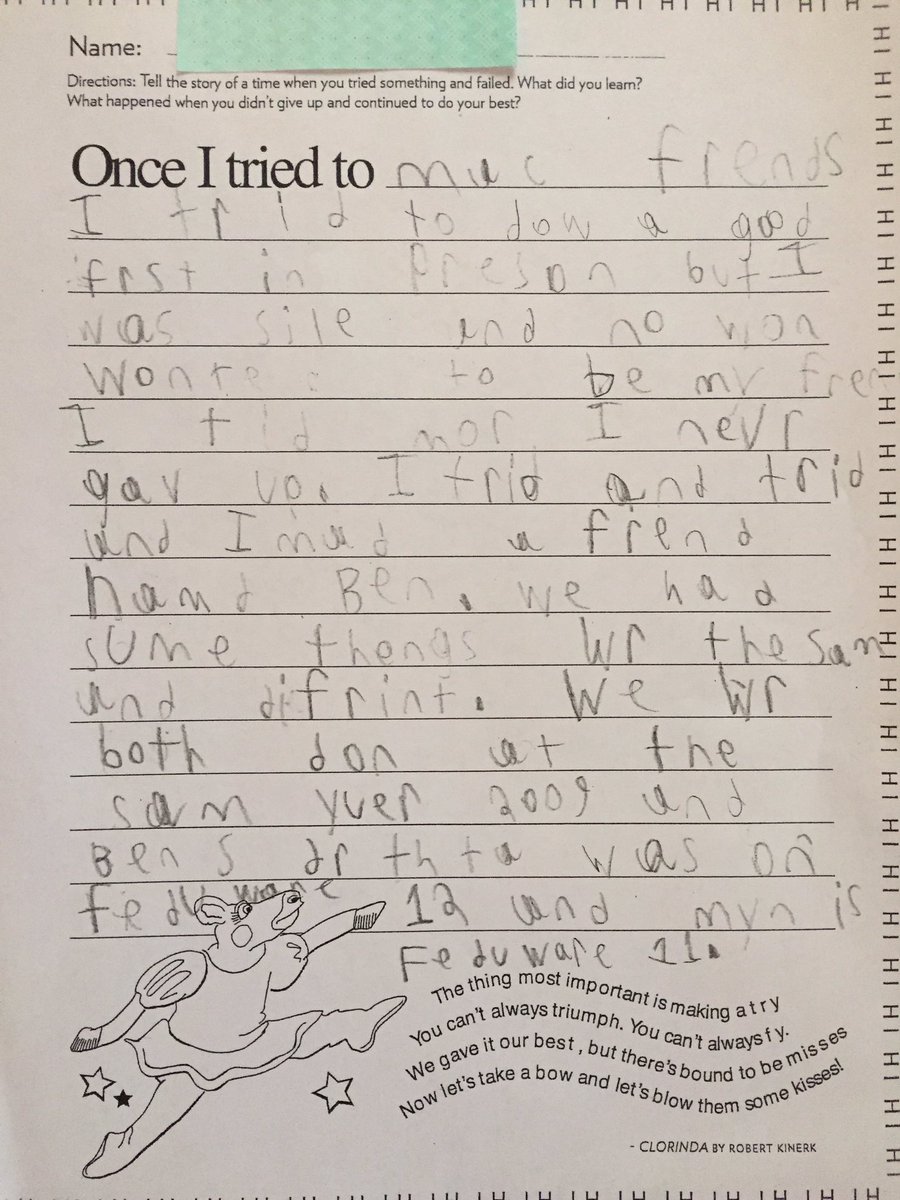 Name:
Directions: Tell the story of a time when you tried something and failed. What did you learn?
What happened when you didn't give up and continued to do your best?
Once I tried to muc frends
I trid to dow a good
frst in preson but I
was sile and no won
wonte to be my fren
I trid mor I nevr
gav up. I trid and trid
and I mad a frend
namd Ben. we had
sume thengs wr the sam
and difrint. We wr
both don at the
sam yuer 2009 and
Bens drthta was on
feduware 12 and myn is
Feduware 11.
The thing most important is making a try
You can't always triumph. You can't always fy.
We gave it our best, but there's bound to be misses
Now let's take a bow and let's blow them some kisses!
- CLORINDA BY ROBERT KINERK